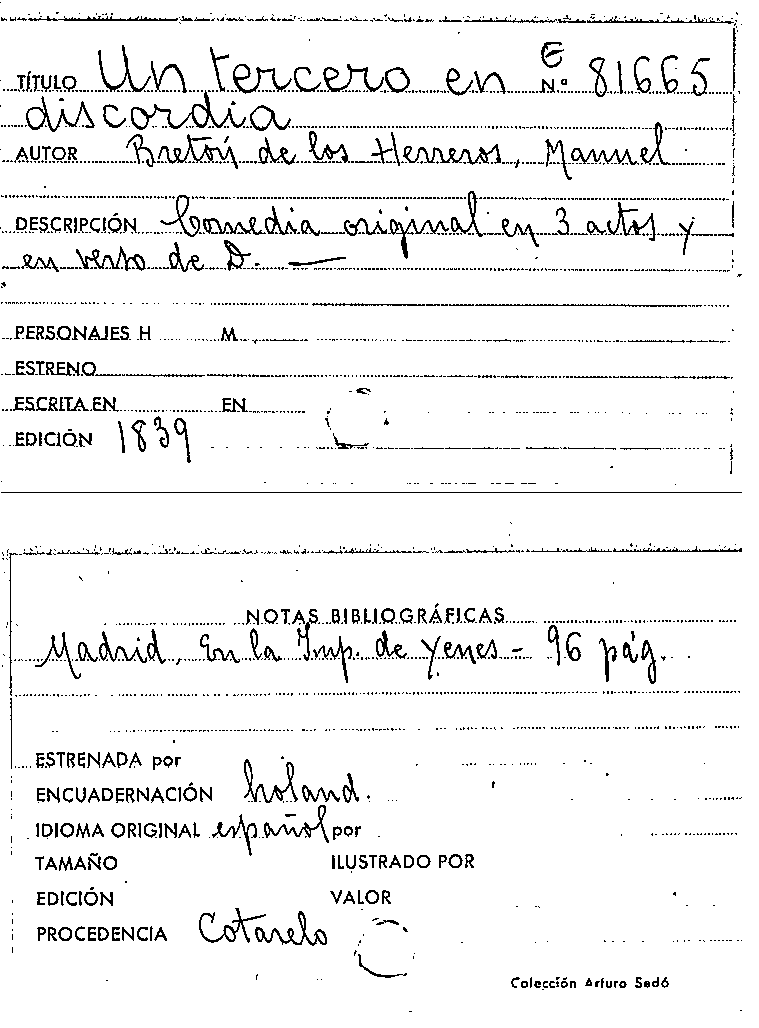 TÍTULO Un tercero en E N.º 81665
discordia
AUTOR Bretón de los Herreros, Manuel
DESCRIPCIÓN Comedia original en 3 actos y
en verso de D. —
PERSONAJES H M.
ESTRENO
ESCRITA EN EN
EDICIÓN 1839
NOTAS BIBLIOGRÁFICAS
Madrid, En la Imp. de Yenes - 96 pág.
ESTRENADA por
ENCUADERNACIÓN holand.
IDIOMA ORIGINAL español por
TAMAÑO ILUSTRADO POR
EDICIÓN VALOR
PROCEDENCIA Cotarelo
Colección Arturo Sedó